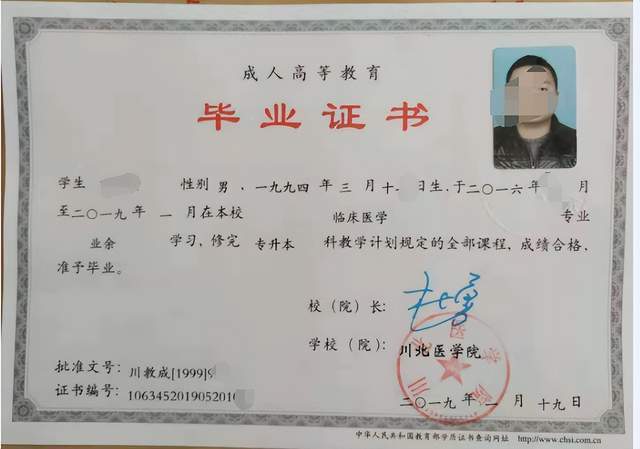 成人高等教育
毕业证书
学生 性别 男，一九九四 年 三 月 十 日生，于二〇一六年 月
至二〇一九年 一 月在本校 临床医学 专业
业余 学习，修完 专升本 科教学计划规定的全部课程，成绩合格，
准予毕业。
校（院）长：
学校（院）：川北医学院
批准文号：川教成[1999]
证书编号：1063452019052010
二〇一九年 一 月 十九日
中华人民共和国教育部学历证书查询网址 http://www.chsi.com.cn